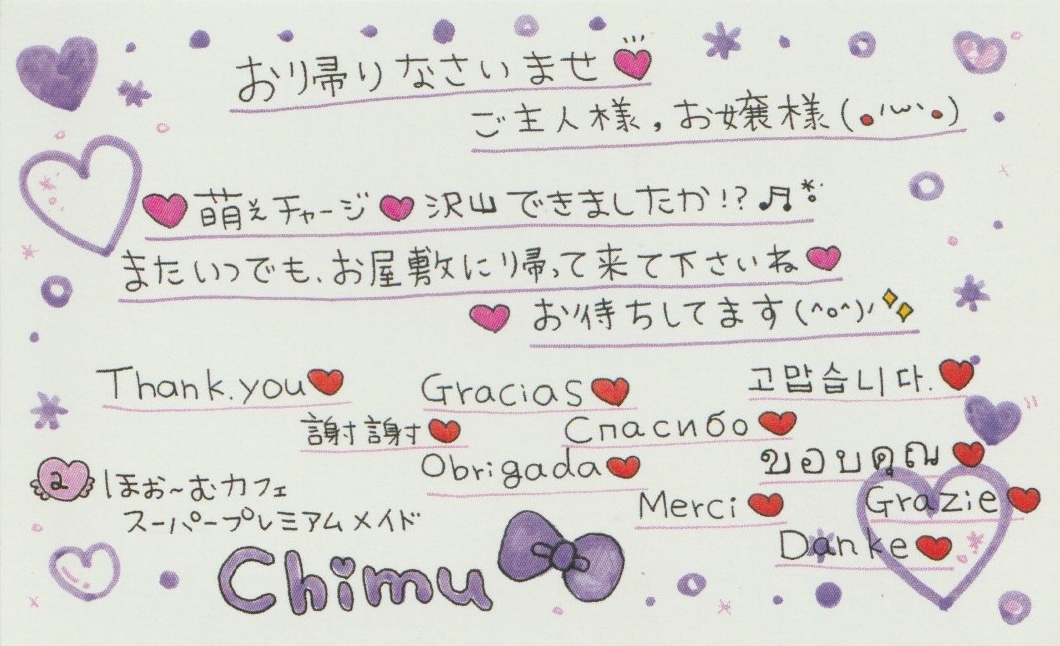 おり帰りなさいませ
ご主人様，お嬢様(•'ω'•)
萌えチャージ 沢山できましたか!?♬
またいつでも、お屋敷にり帰って来て下さいね
お待ちしてます(^o^)ノ
Thank.you
Gracias
고맙습니다.
謝謝
Спасибо
Obrigada
ขอบคุณ
Merci
Grazie
Danke
ほぉ～むカフェ
スーパープレミアムメイド
Chimu